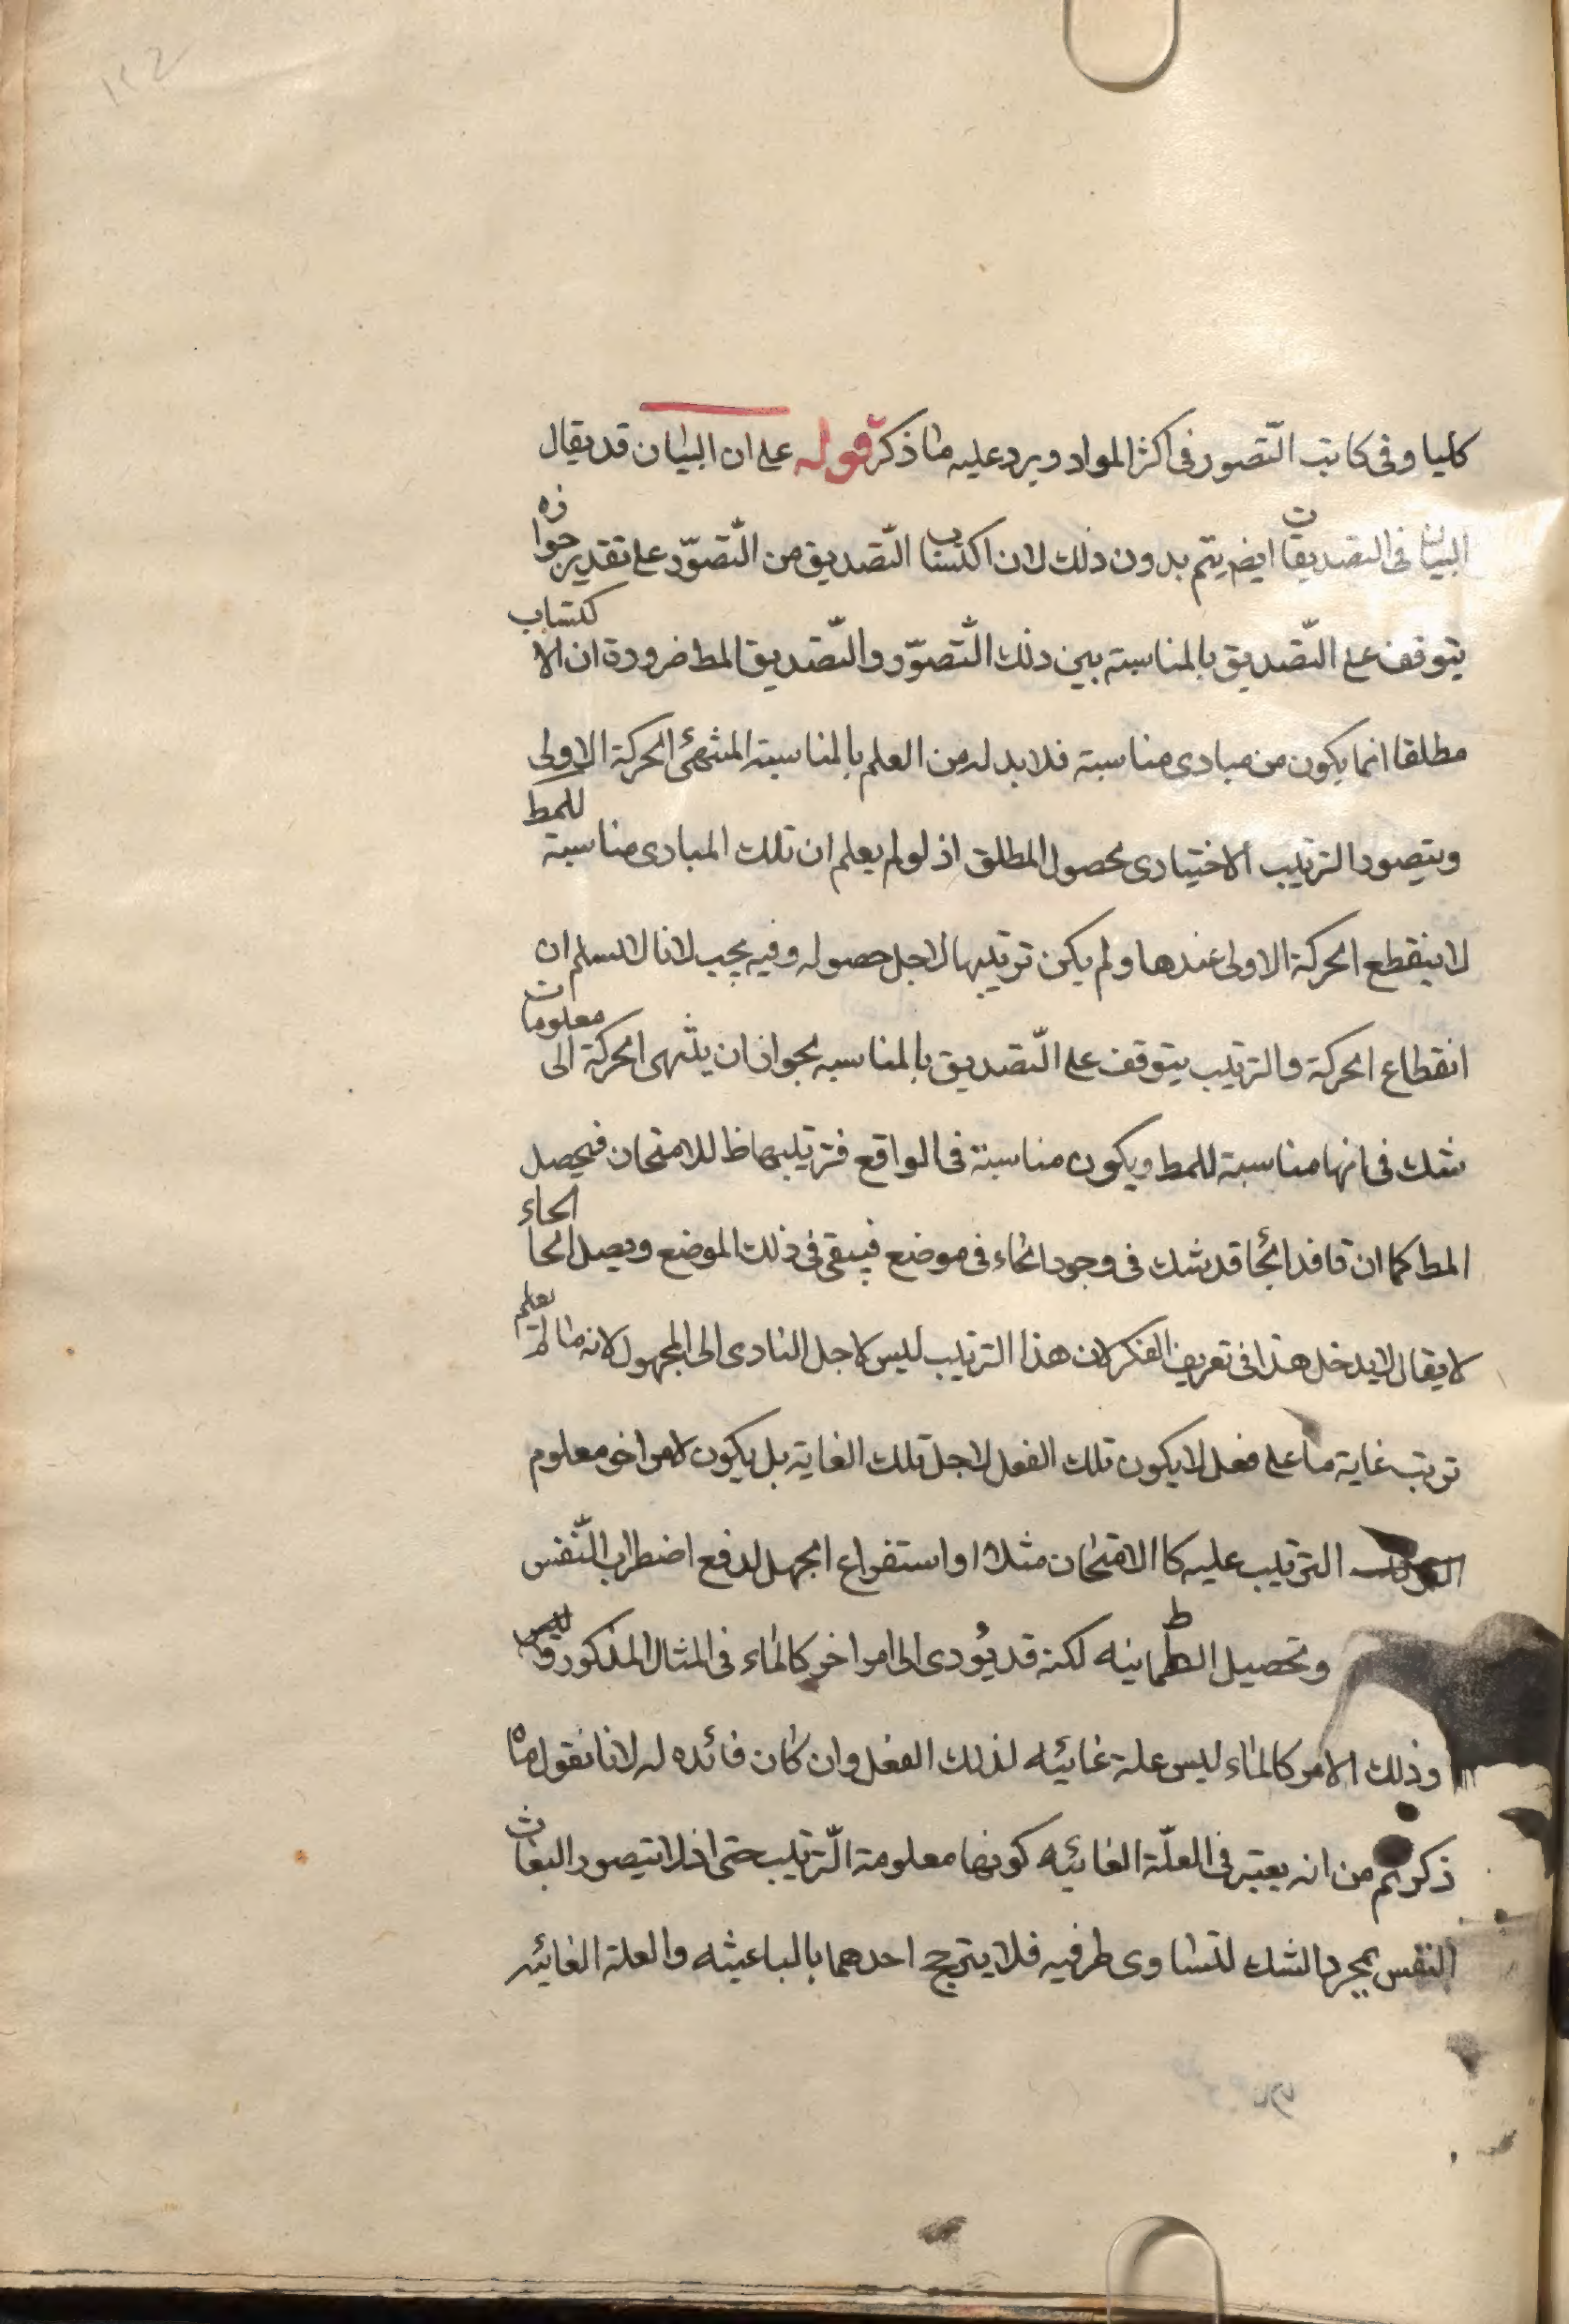 كليا وفى كاتب التّصور فى اكثر المواد ويرد عليه ما ذكر قوله على ان البيان قد يقال
البيان فى التصديقات ايضم يتم بدون ذلك لان اكتساب التّصديق من التّصوّر على تقدير جوازه
يتوقف على التّصديق بالمناسبة بين ذلك التّصوّر والتّصديق المط ضرورة ان الاكتساب
مطلقا انما يكون من مبادى مناسبة فلا بد له من العلم بالمناسبة المنتهى الحركة الاولى
ويتصور الترتيب الاختيارى لحصول المطلق اذ لو لم يعلم ان تلك المبادى مناسبة للمط
لا ينقطع الحركة الاولى عندها ولم يكن ترتيبها لاجل حصوله وفيه يجب لانا لا نسلم ان
انقطاع الحركة والترتيب يتوقف على التّصديق بالمناسبه لجواز ان ينتهى الحركة الى معلومات
شك فى انها مناسبة للمط ويكون مناسبة فى الواقع فترتيبها ظ للامتحان فيحصل
المط كما ان فاقد الجا قد شك فى وجود الماء فى موضع فيبقى فى ذلك الموضع ويصل الحاء
لا يقال لا يدخل هذا فى تعريف الفكر لان هذا الترتيب ليس لاجل التادى الى المجهول لانه ما لم يعلم
ترتب غاية ما على فعل لا يكون تلك الفعل لاجل تلك الغاية بل يكون لامر اخر معلوم
الترتيب عليه كا الامتحان مثلا او استفراع الجهل لدفع اضطراب النّفس
وتحصيل الطمانينه لكنه قد يؤدى الى امر اخر كالماء فى المثال المذكور وليس
وذلك الامر كالماء ليس علة غائيه لذلك الفعل وان كان فائده له لانا نقول ما
ذكرتم من انه يعتبر فى العلّة الغائيه كونها معلومة التّرتيب حتى اذ لا يتصور البعاث
النفس بمجرد الشك لتساوى طرفيه فلا يترجح احدهما بالباعيثه والعلة الغائيه